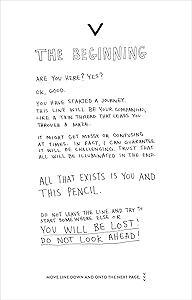 THE BEGINNING
ARE YOU HERE? YES?
OK, GOOD.
YOU HAVE STARTED A JOURNEY.
THIS LINE WILL BE YOUR COMPANION,
LIKE A THIN THREAD THAT LEADS YOU
THROUGH A MAZE.
IT MIGHT GET MESSY OR CONFUSING
AT TIMES. IN FACT, I CAN GUARANTEE
IT WILL BE CHALLENGING. TRUST THAT
ALL WILL BE ILLUMINATED IN THE END.
ALL THAT EXISTS IS YOU AND
THIS PENCIL.
DO NOT LEAVE THE LINE AND TRY TO
START SOMEWHERE ELSE OR
YOU WILL BE LOST!
DO NOT LOOK AHEAD!
MOVE LINE DOWN AND ONTO THE NEXT PAGE.